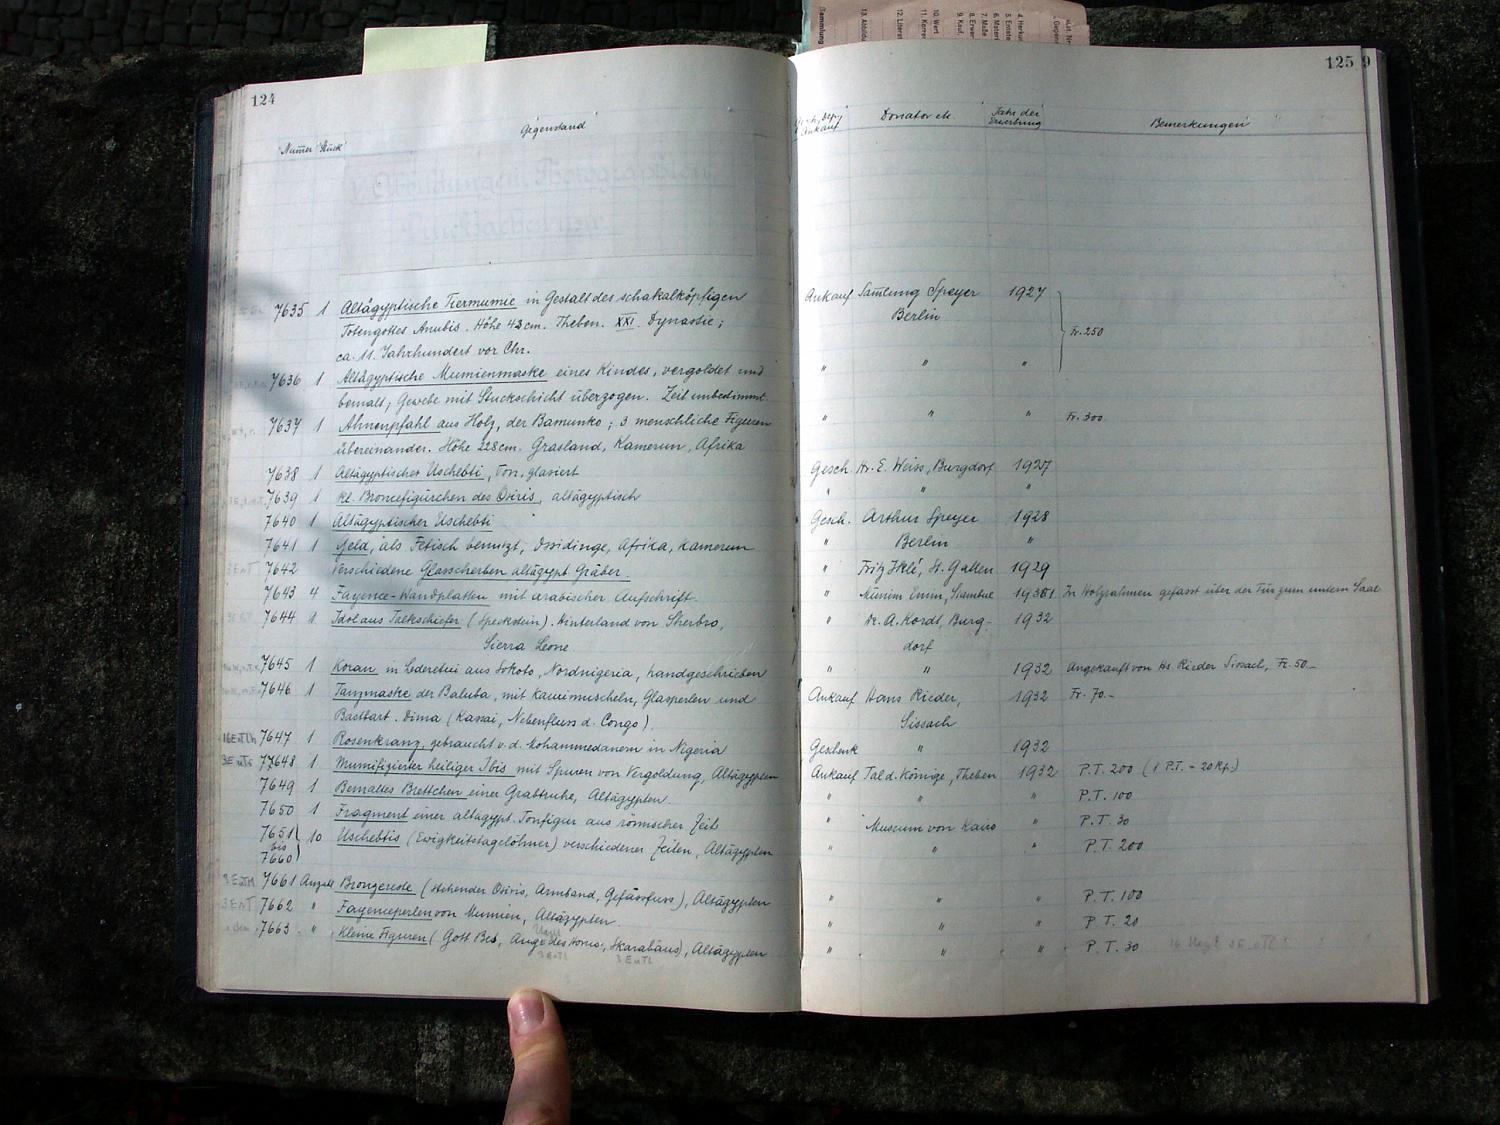 124
Numer Stück
Gegenstand
7635 1 Altägyptische Tiermumie in Gestalt des schakalköpfigen
Totengottes Anubis. Höhe 43 cm. Theben. XXI. Dynastie;
ca. 11. Jahrhundert vor Chr.
7636 1 Altägyptische Mumienmaske eines Kindes, vergoldet und
bemalt; Gewebe mit Stuckschicht überzogen. Zeit unbestimmt.
7637 1 Ahnenpfahl aus Holz, der Bamunko; 3 menschliche Figuren
übereinander. Höhe 228cm. Grasland, Kamerun, Afrika
7638 1 Altägyptischer Uschebti, Ton, glasiert
7639 1 kl. Broncefigürchen des Osiris, altägyptisch
7640 1 Altägyptischer Uschebti
7641 1 Geld, als Fetisch benutzt, Ossidinge, Afrika, Kamerun
3EnT 7642 Verschiedene Glasscherben altägypt Gräber.
7643 4 Fayence-Wandplatten mit arabischer Aufschrift.
7644 1 Idol aus Talkschiefer (Speckstein). Hinterland von Sherbro,
Sierra Leone
7645 1 Koran in Lederetui aus Sokoto, Nordnigeria, handgeschrieben
7646 1 Tanzmaske der Baluba, mit Kaurimuscheln, Glasperlen und
Bastbart. Dima (Kassai, Nebenfluss d. Congo).
7647 1 Rosenkranz, gebraucht v. d. Mohammedanern in Nigeria
77648 1 Mumifizierter heiliger Ibis mit Spuren von Vergoldung, Altägypten
7649 1 Bemaltes Brettchen einer Grabtruhe, Altägypten.
7650 1 Fragment einer altägypt. Tonfigur aus römischer Zeit
7651 10 Uschebtis (Ewigkeitstagelöhner) verschiedener Zeiten, Altägypten
bis
7660
7661 Anzahl Bronzereste (stehender Osiris, Armband, Gefässfuss), Altägypten
3EnT 7662 " Fayenceperlen von Mumien, Altägypten.
7663 " Kleine Figuren (Gott Bes, Auge des Horus, Skarabäus), Altägypten
3EnTl 3EnTl
125 9
Gesch., Dep., Ankauf
Donator etc.
Jahr der Erwerbung
Bemerkungen
Ankauf Samlung Speyer 1927
Berlin
Fr. 250
" " "
" " " Fr. 300
Gesch. Hr. E. Weiss, Burgdorf 1927
" " "
Gesch. Arthur Speyer 1928
" Berlin "
" Fritz Iklé, St. Gallen 1929
" Münim Emin, Stambul 1931 In Holzrahmen gefasst über der Tür zum untern Saal
" Dr. A. Kordt, Burg- 1932
dorf
" " 1932 Angekauft von Hr. Rieder Sissach, Fr. 50.-
Ankauf Hans Rieder, 1932 Fr. 70.-
Sissach
Geschenk " 1932
Ankauf Tal d. Könige, Theben 1932 P.T. 200 (1 P.T. = 20 Rp.)
" " " P.T. 100
" Museum von Kairo " P.T. 30
" " " P.T. 200
" " " P.T. 100
" " " P.T. 20
" " " P.T. 30